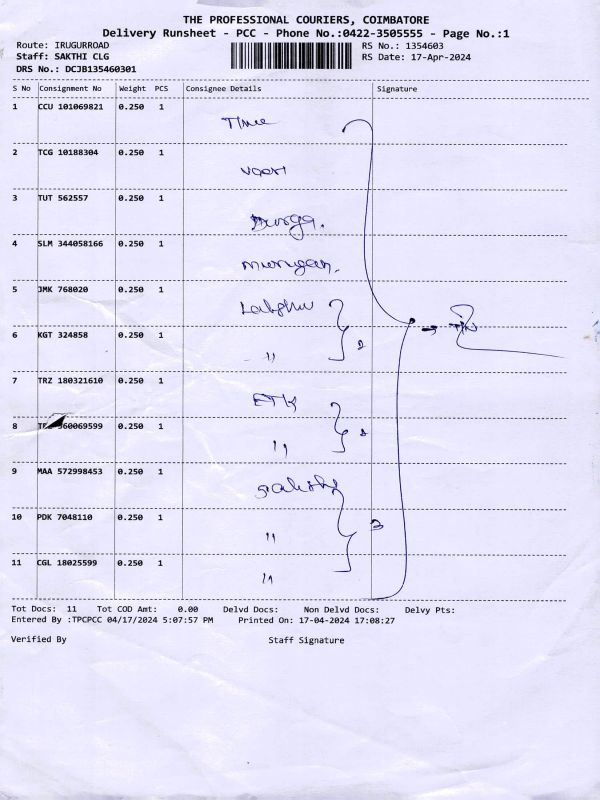 THE PROFESSIONAL COURIERS, COIMBATORE
Delivery Runsheet - PCC - Phone No.:0422-3505555 - Page No.:1
Route: IRUGURROAD RS No.: 1354603
Staff: SAKTHI CLG RS Date: 17-Apr-2024
DRS No.: DCJB135460301
S No Consignment No Weight PCS Consignee Details Signature
1 CCU 101069821 0.250 1 Time
2 TCG 10188304 0.250 1
3 TUT 562557 0.250 1 Durga.
4 SLM 344058166 0.250 1 murugan.
5 JMK 768020 0.250 1
6 KGT 324858 0.250 1 "
7 TRZ 180321610 0.250 1 ETK
8 960069599 0.250 1 "
9 MAA 572998453 0.250 1
10 PDK 7048110 0.250 1 " 3
11 CGL 18025599 0.250 1 "
Tot Docs: 11 Tot COD Amt: 0.00 Delvd Docs: Non Delvd Docs: Delvy Pts:
Entered By :TPCPCC 04/17/2024 5:07:57 PM Printed On: 17-04-2024 17:08:27
Verified By Staff Signature